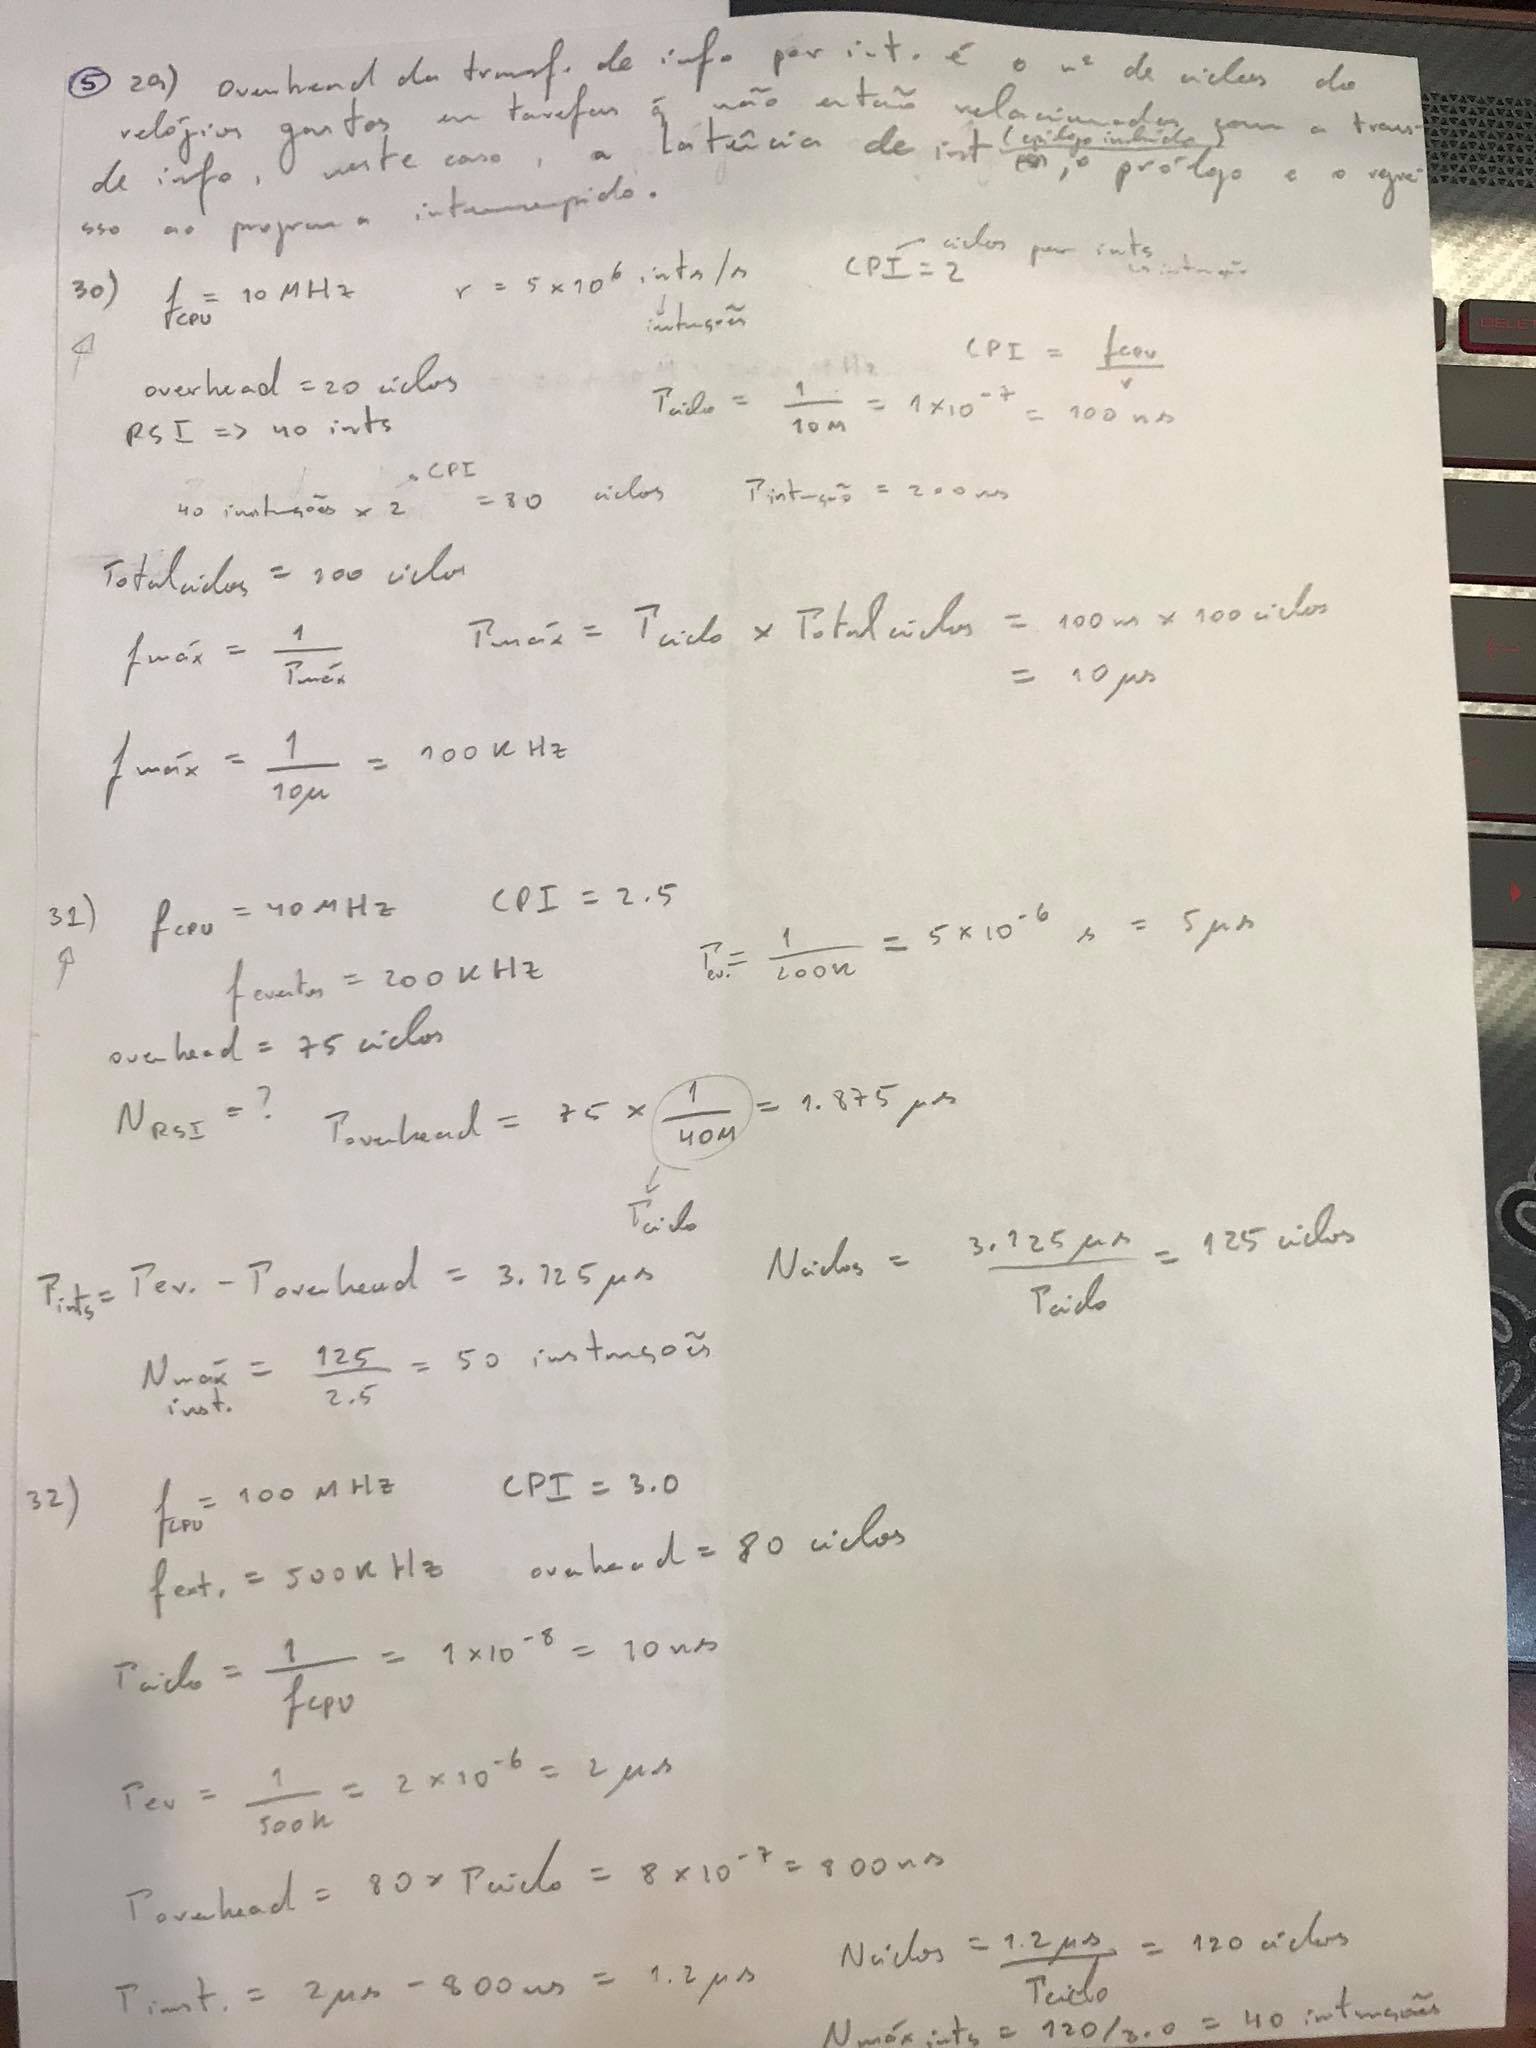 ⑤ 29) overhead da transf. de info por int. é o nº de ciclos do
relógios gastos em tarefas q não estão relacionadas com a trans-
de info, neste caso, a latência de inst (epílogo incluído), o prólogo e o regre-
sso ao programa interrompido.
30) fCPU = 10 MHz r = 5×10⁶ ints/s CPI = 2 ciclos por ints
instruções
CPI = fCPU/r
overhead = 20 ciclos Tciclo = 1/10M = 1×10⁻⁷ = 100 ns
RSI => 40 ints
40 instruções × 2 → CPI = 80 ciclos Tinstrução = 200ns
Totalciclos = 100 ciclos
fmáx = 1/Tmáx Tmáx = Tciclo × Totalciclos = 100ns × 100 ciclos
= 10 µs
fmáx = 1/10µ = 100 KHz
31) fCPU = 40 MHz CPI = 2.5
feventos = 200 KHz Tev. = 1/200K = 5×10⁻⁶ s = 5 µs
overhead = 75 ciclos
NRSI = ? Toverhead = 75 × 1/40M = 1.875 µs
Tciclo
Tints = Tev. - Toverhead = 3.125 µs Nciclos = 3.125 µs/Tciclo = 125 ciclos
Nmáx inst. = 125/2.5 = 50 instruções
32) fCPU = 100 MHz CPI = 3.0
fext. = 500 KHz overhead = 80 ciclos
Tciclo = 1/fCPU = 1×10⁻⁸ = 10 ns
Tev = 1/500K = 2×10⁻⁶ = 2 µs
Toverhead = 80 × Tciclo = 8×10⁻⁷ = 800 ns
Tinst. = 2µs - 800ns = 1.2 µs Nciclos = 1.2 µs/Tciclo = 120 ciclos
Nmáx ints = 120/3.0 = 40 instruções